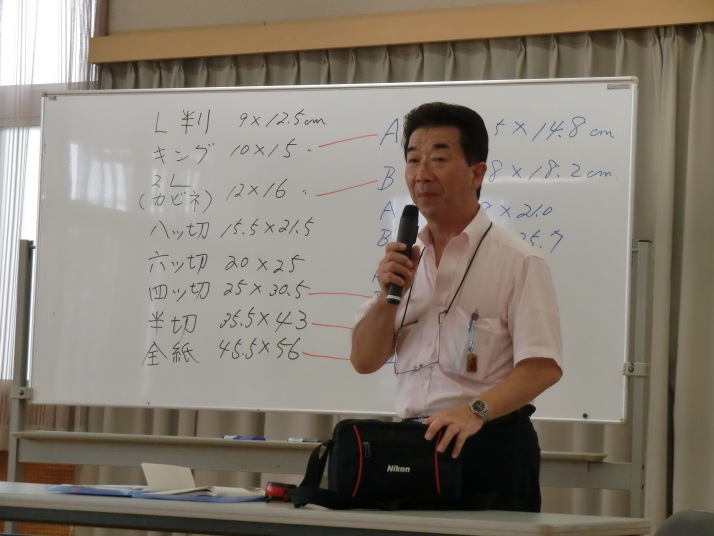 L判 9×12.5cm
キング 10×15
2L
(カビネ) 12×16
八ッ切 15.5×21.5
六ッ切 20×25
四ッ切 25×30.5
半切 35.5×43
全紙 45.5×56
A 5×14.8cm
B 8×18.2cm
A ×21.0
B 5.7
Nikon